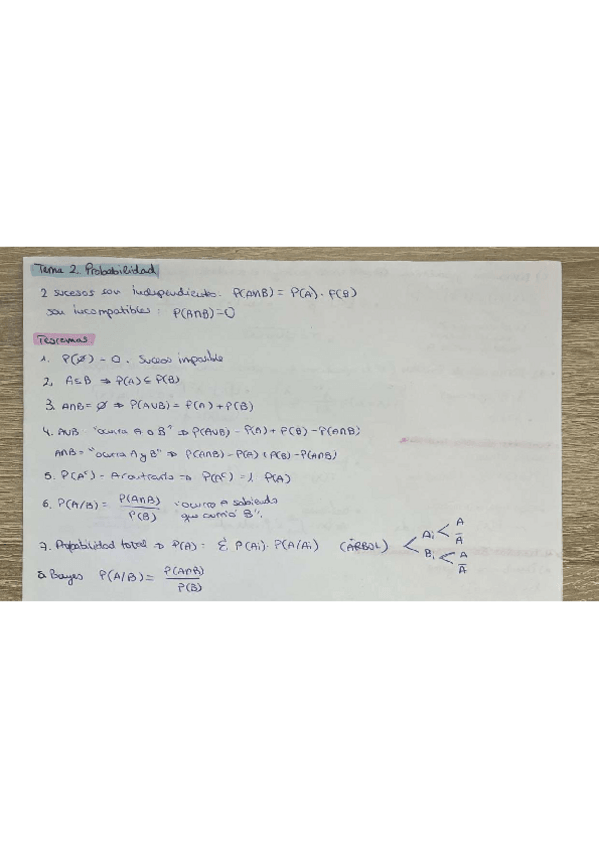 Tema 2. Probabilidad
2 sucesos son independiente. P(A∩B) = P(A) · P(B)
son incompatibles: P(A∩B)=0
Teoremas
1. P(∅) = 0. Suceso imposible
2. A⊆B ⇒ P(A) ⊆ P(B)
3. A∩B = ∅ ⇒ P(A∪B) = P(A) + P(B)
4. A∪B "ocurra A o B" ⇒ P(A∪B) = P(A) + P(B) - P(A∩B)
A∩B = "ocurra A y B" ⇒ P(A∩B) = P(A) + P(B) - P(A∩B)
5. P(Aᶜ) - A contrario ⇒ P(Aᶜ) = 1 - P(A)
6. P(A/B) = P(A∩B) / P(B) "ocurra A sabiendo
que ocurrió B".
7. Probabilidad total ⇒ P(A) = Σ P(Ai) · P(A/Ai) (ÁRBOL) Ai A Ā
Bi A Ā
8. Bayes P(A/B) = P(A∩B) / P(B)